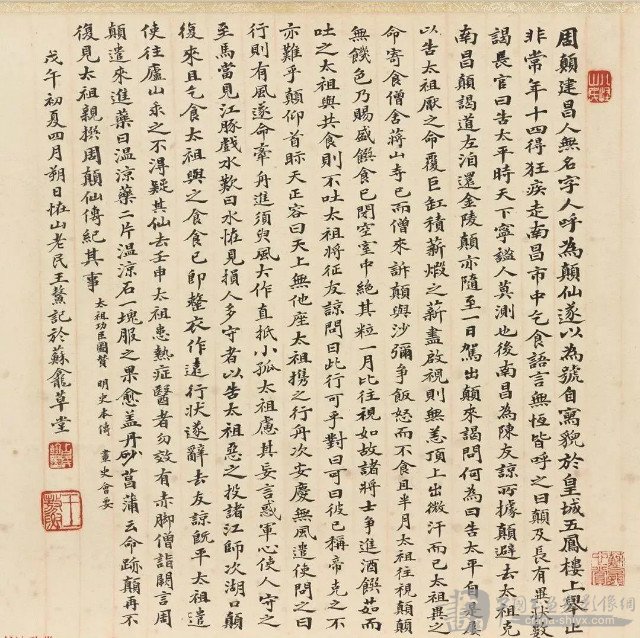 周顛建昌人無名字人呼為顛仙遂以為號自寫貌於皇城五鳳樓上舉止
非常年十四得狂疾走南昌市中乞食語言無恆皆呼之曰顛及長有異狀數
謁長官曰告太平時天下寧謐人莫測也後南昌為陳友諒所據顛避去太祖克
南昌顛謁道左洎還金陵顛亦隨至一日駕出顛來謁問何為曰告太平自是屢
以告太祖厭之命覆巨缸積薪煅之薪盡啟視則無恙頂上出微汗而已太祖異之
命寄食僧舍蔣山寺已而僧來訴顛與沙彌爭飯怒而不食且半月太祖往視顛顛
無饑色乃賜盛饌食已閉空室中絕其粒一月比往視如故諸將士爭進酒饌茹而
吐之太祖與共食則不吐太祖將征友諒問曰此行可乎對曰可曰彼已稱帝克之不
亦難乎顛仰首眎天正容曰天上無他座太祖攜之行舟次安慶無風遣使問之曰
行則有風遂命牽舟進須臾風大作直抵小孤太祖慮其妄言惑軍心使人守之
至馬當見江豚戲水歎曰水恠見損人多守者以告太祖惡之投諸江師次湖口顛
復來且乞食太祖與之食食已即整衣作遠行狀遂辭去友諒既平太祖遣
使往廬山求之不得疑其仙去壬申太祖患熱症醫者勿效有赤腳僧詣闕言周
顛遣來進藥曰溫涼藥二片溫涼石一塊服之果愈蓋丹砂菖蒲云命跡顛再不
復見太祖親撰周顛仙傳紀其事 太祖功臣圖贊 明史本傳 畫史會要
戊午初夏四月朔日恠山老民王 記於蘇龕草堂